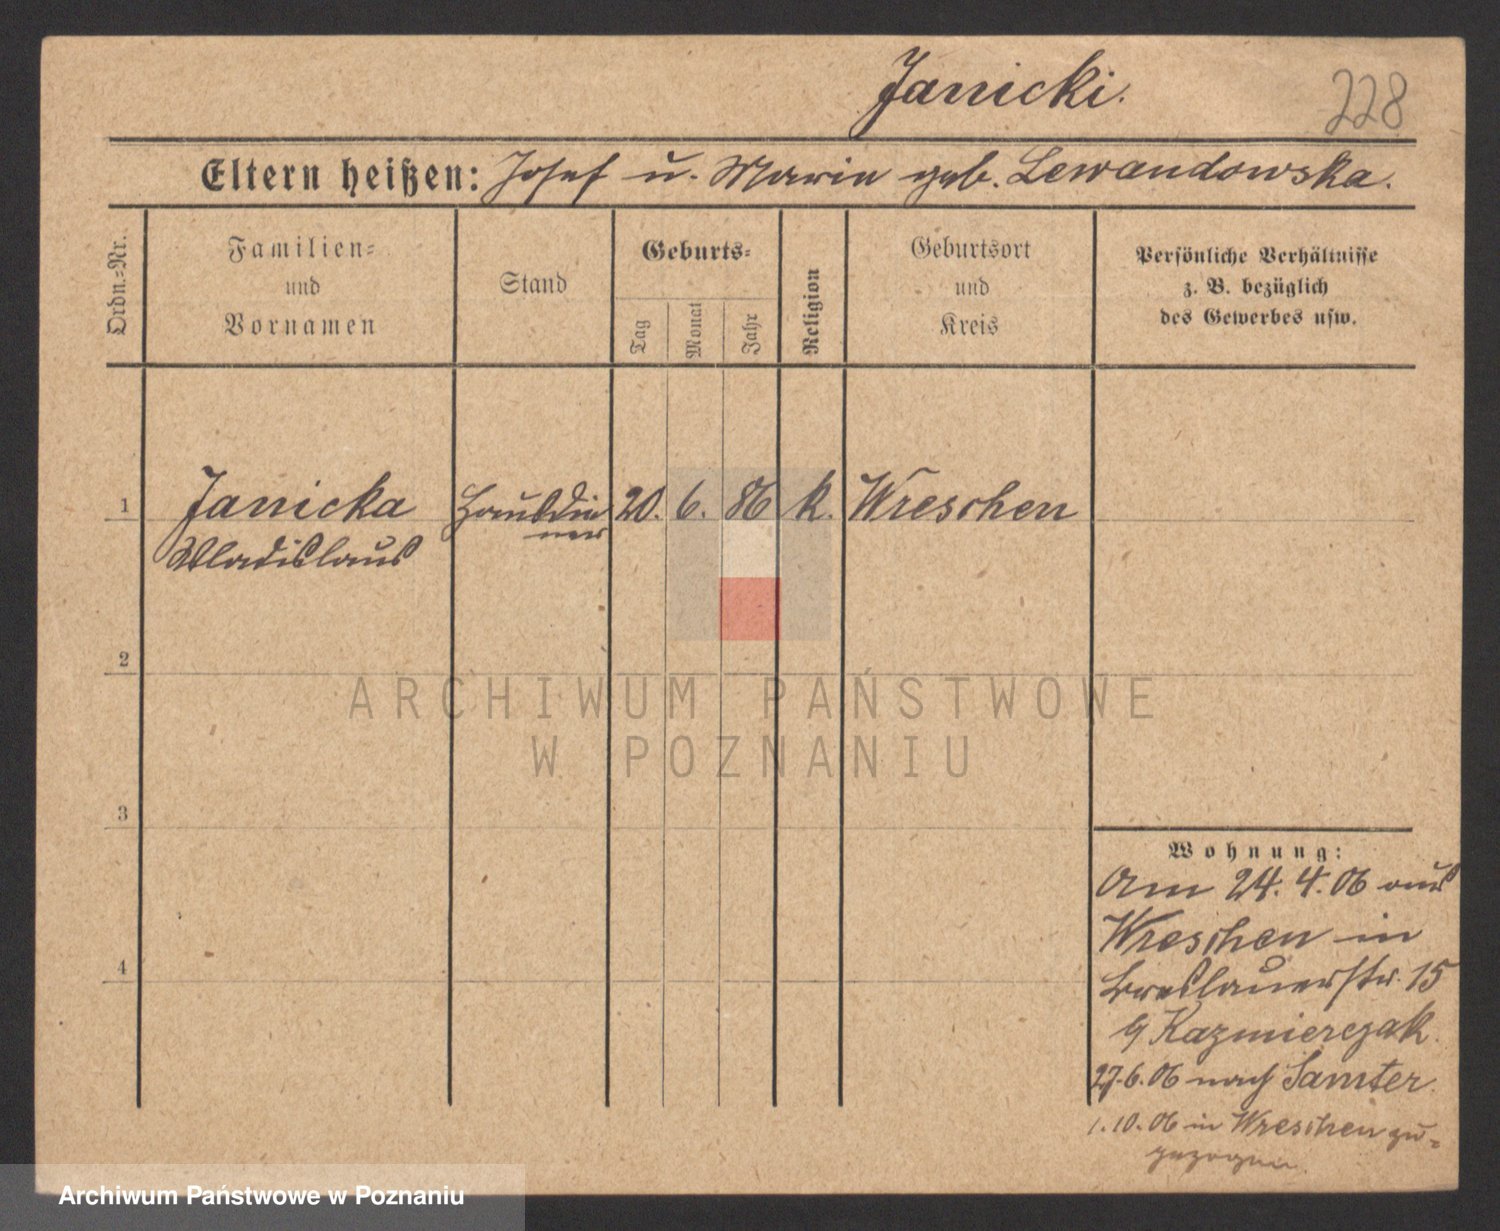 Janicki.
228
Eltern heißen: Josef u. Maria geb. Lewandowska.
Ordn.-Nr.
Familien-
und
Vornamen
Stand
Geburts-
Tag
Monat
Jahr
Religion
Geburtsort
und
Kreis
Persönliche Verhältnisse
z. B. bezüglich
des Gewerbes usw.
1 Janicka Hausdie 20. 6. 86 k. Wreschen
Wladislaus ner
2
ARCHIWUM PAŃSTWOWE
W POZNANIU
3
Wohnung:
Am 24. 4. 06 aus
Wreschen in
Breslauerstr. 15
4
b/ Kazmierczak.
27.6.06 nach Samter.
1.10.06 in Wreschen zu-
gezogen.
Archiwum Państwowe w Poznaniu